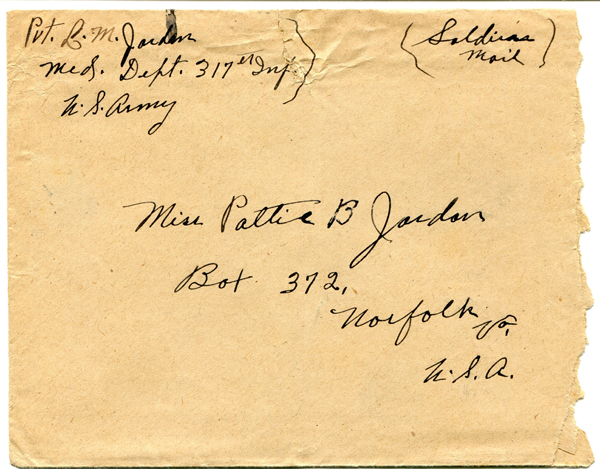 Pvt. L. M. Jordan
Med. Dept. 317th Inf.
U.S. Army
(Soldiers
Mail)
Miss Pattie B Jordan
Box 372,
Norfolk Va.
U.S.A.